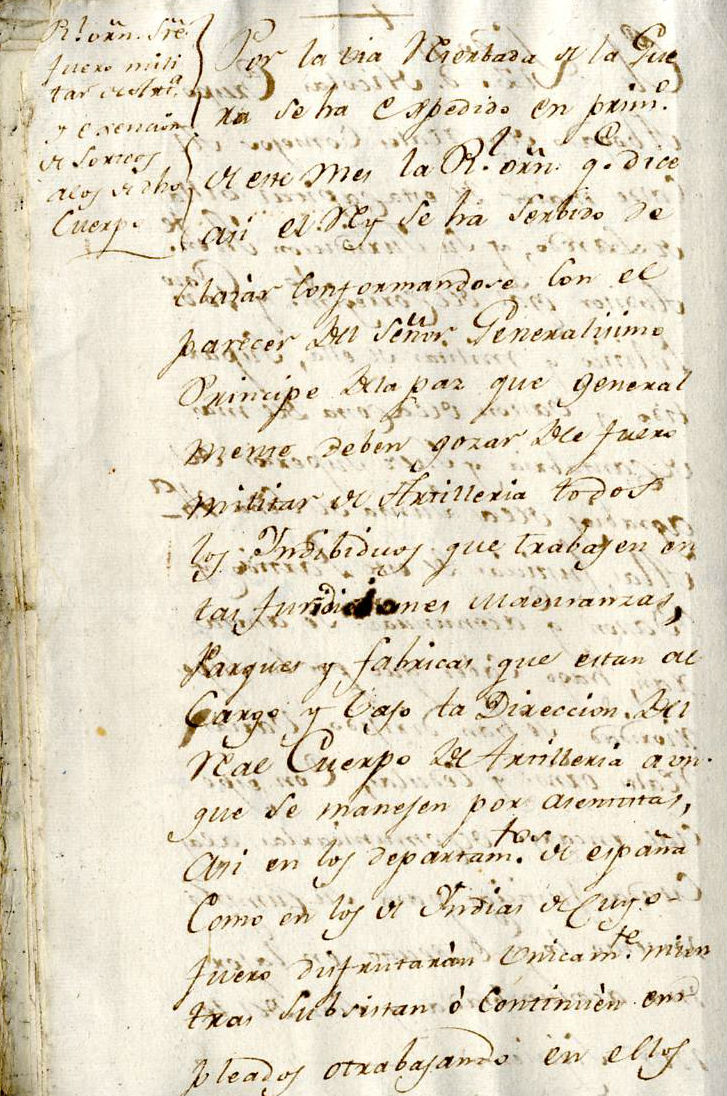 Rl. orn. sre.
fuero mili
tar de Artia.
y exencion
de Sorteos
alos de dho
Cuerpo
Por la via Reserbada de la Gue
rra se ha expedido en prim.o
de este mes la Rl. orn. q.e dice
asi el Rey se ha Serbido de
clarar Conformandose con el
parecer del Señor Generalisimo
Principe dela paz que general
mente deben gozar de fuero
militar de Artilleria todos
los Yndibiduos que trabajen en
las Jurisdiciones Maestranzas,
Parques y fabricas que estan al
Cargo y bajo la Direccion del
Real Cuerpo de Artilleria aun
que se manejen por asentistas,
Asi en los departam.tos de españa
Como en los de Yndias de Cuyo
fuero disfrutarán Unicam.te mien
tras Subsistan ó Continuèn em
pleados o trabajando en ellos